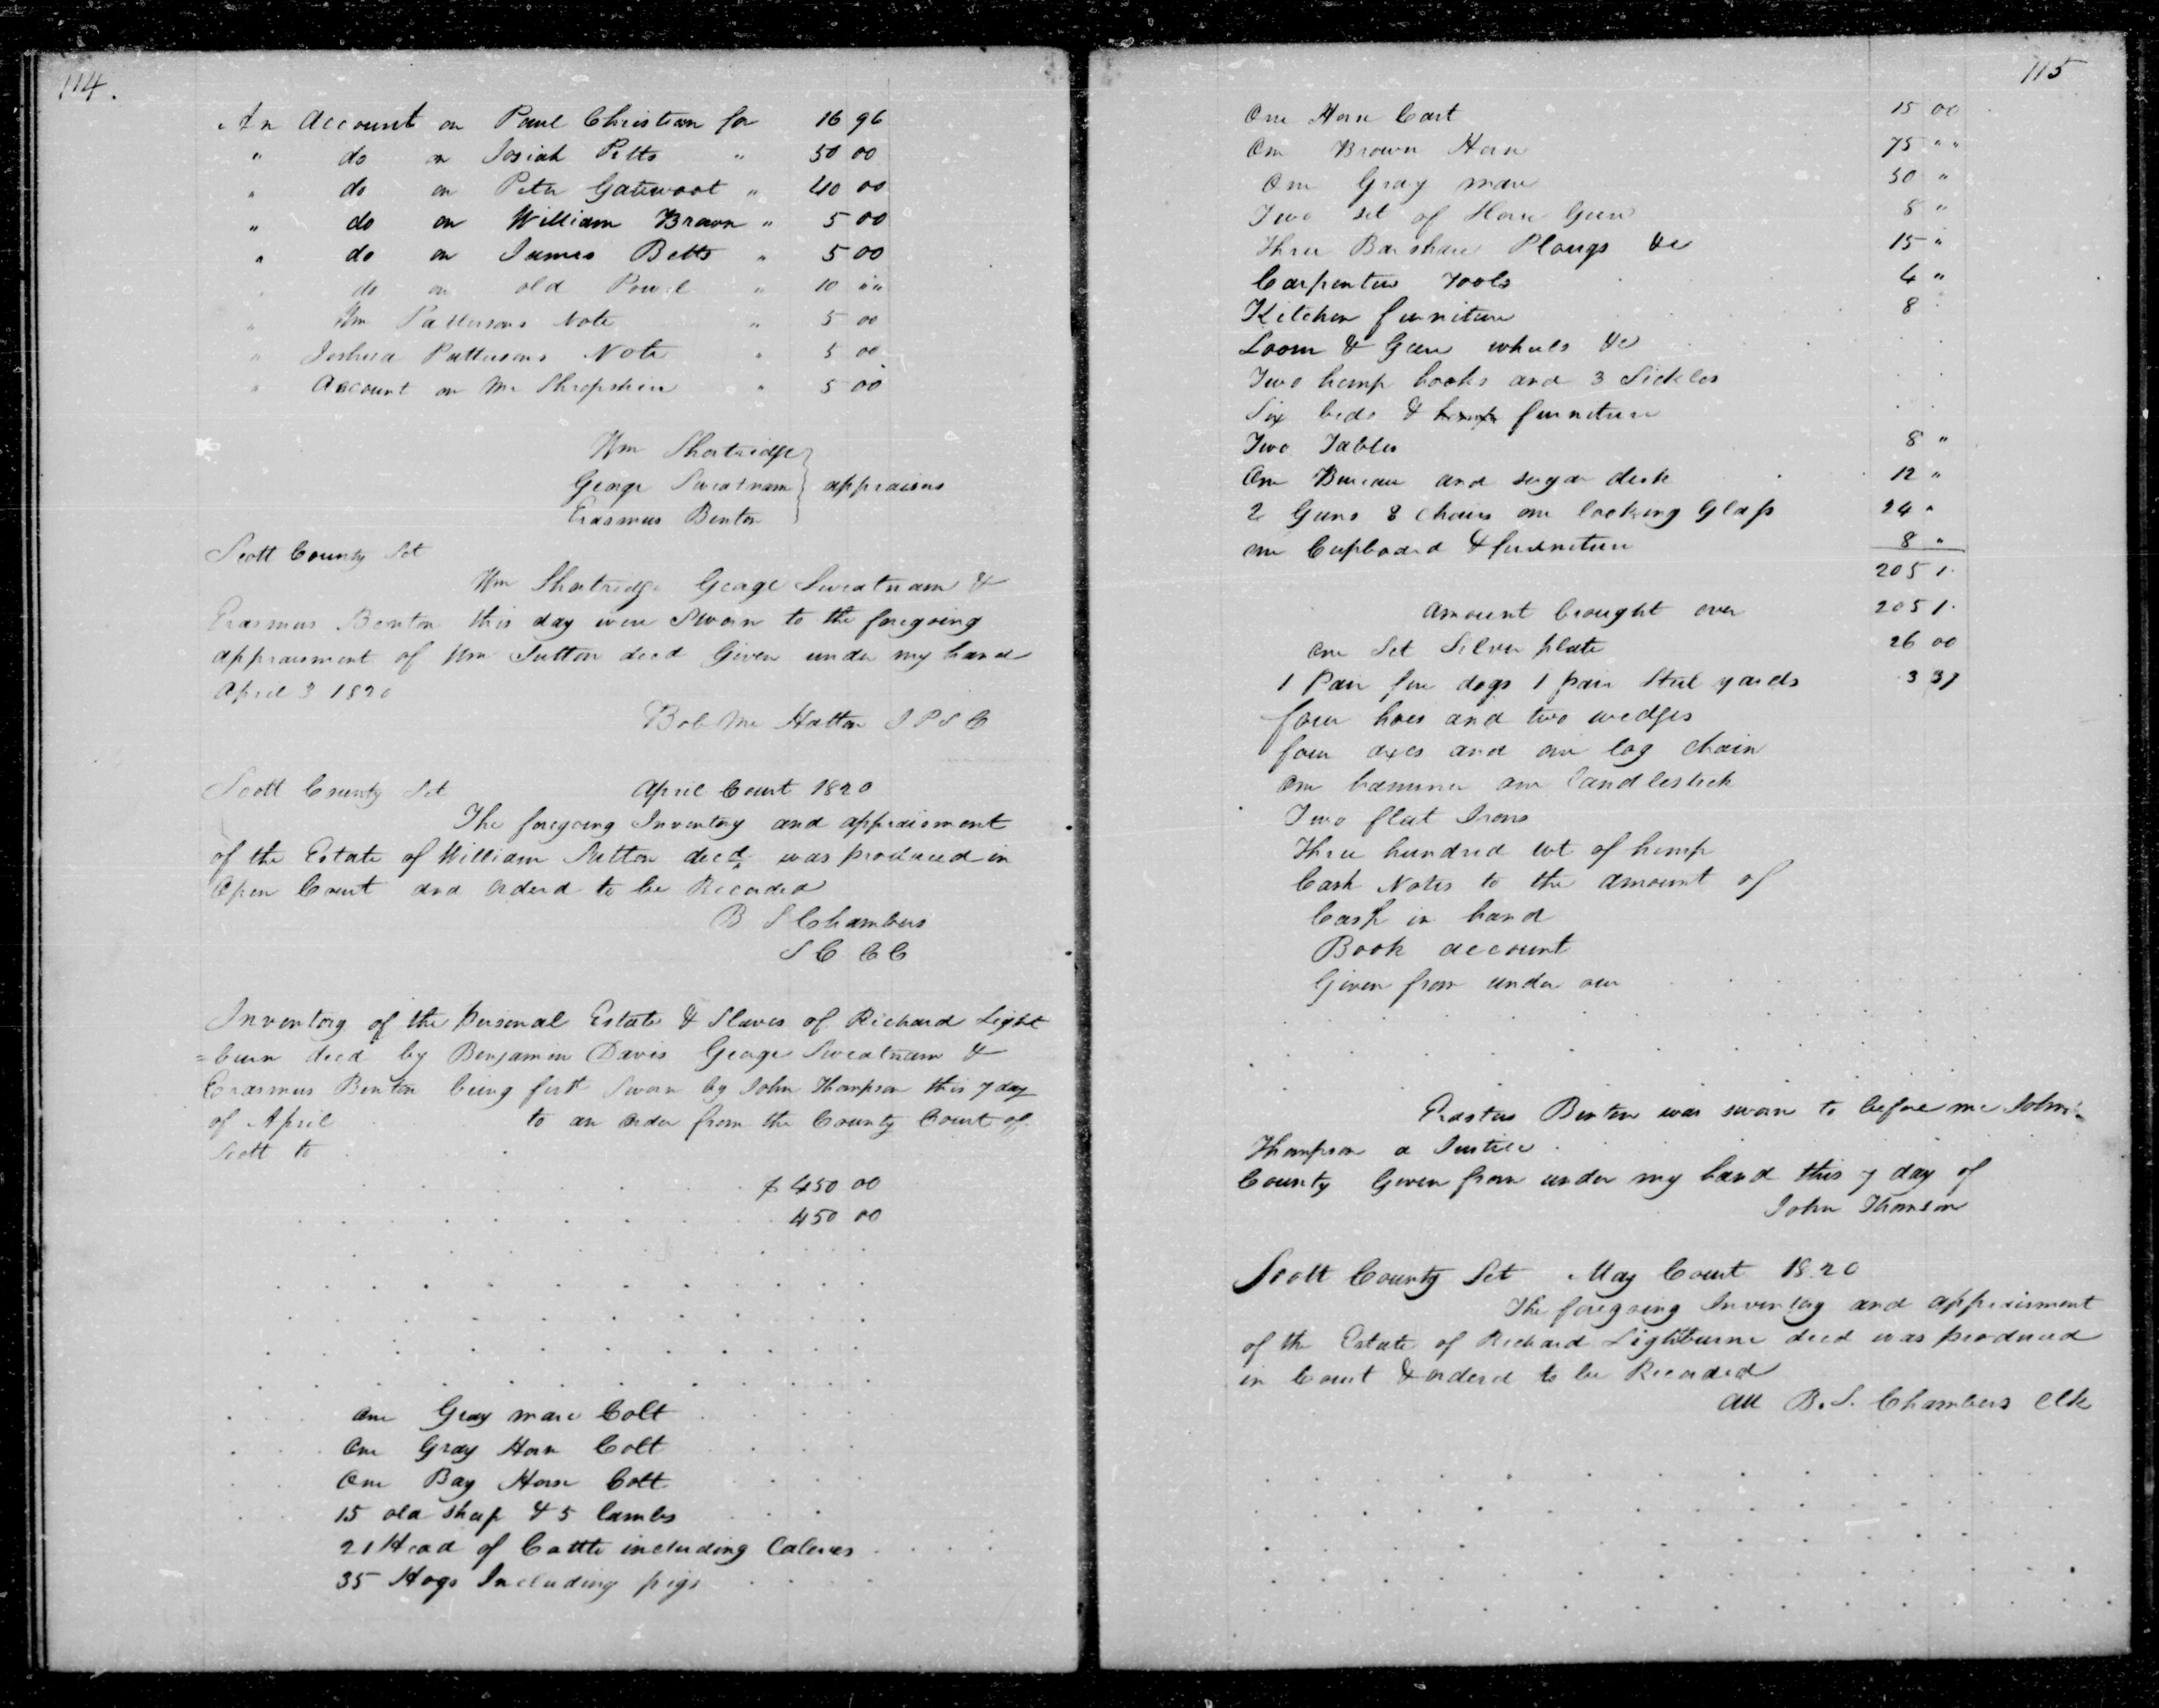 114.
An Account on Paul Christian for 16 96
" do on Josiah Pitts " 50 00
" do on Peter Gatewoot " 40 00
" do on William Brown " 5 00
" do on James Betts " 5 00
" do on old Powel " 10 ""
" Wm Pattersons Note " 5 00
" Joshua Pattersons Note " 5 00
" Account on Mr Shropshire " 5 00
Wm Shortridge
George Sweatnam } appraisers
Erasmus Benton
Scott County Sct
Wm Shortridge George Sweatnam &
Erasmus Benton this day were Sworn to the foregoing
appraisment of Wm Sutton decd Given under my hand
April 3 1820
Bob Mc Hatton J P S C
Scott County Sct April Court 1820
The foregoing Inventory and appraisment
of the Estate of William Sutton decd was produced in
Open Court and orderd to be Recorded
B S Chambers
S C C C
Inventory of the personal Estate & Slaves of Richard Light
=burn decd by Benjamin Davis George Sweatnam &
Erasmus Benton being first Sworn by John Thompson this 7 day
of April to an order from the County Court of
Scott to
$ 450 00
450 00
One Gray mare Colt
One Gray Horse Colt
One Bay Horse Colt
15 old sheep & 5 lambs
21 Head of Cattle including Calves
35 Hogs Including pigs
115
One Horse Cart 15 00
One Brown Horse 75 ""
One Gray mare 50 "
Two set of Horse Gear 8 "
Three Barshare Plougs &c 15 "
Carpenters Tools 4 "
Kitchen furniture 8
Loom & Geers wheels &c
Two hemp hooks and 3 Sickles
Six beds & furniture
Two Tables 8 "
One Bureau and sugar desk 12 "
2 Guns 8 Chairs one looking Glass 24 "
one Cupboard & furniture 8 "
2051.
amount brought over 2051.
one Set Silver plate 26 00
1 Pair fire dogs 1 pair Steel yards 3 37
four hoes and two wedges
four axes and one log chain
One hammer one Candlestick
Two flat Irons
Three hundred wt of hemp
Cash Notes to the amount of
Cash in hand
Book account
Given from under our
Erastus Benton was sworn to before me John
Thompson a Justice
County Given from under my hand this 7 day of
John Thomson
Scott County Sct May Court 1820
The foregoing Inventory and appraisment
of the Estate of Richard Lightburne decd was produced
in Court & orderd to be Recorded
Att B. S. Chambers Clk